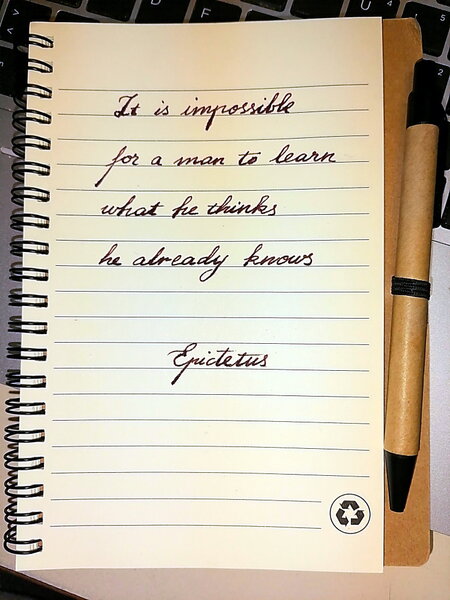 It is impossible
for a man to learn
what he thinks
he already knows
Epictetus